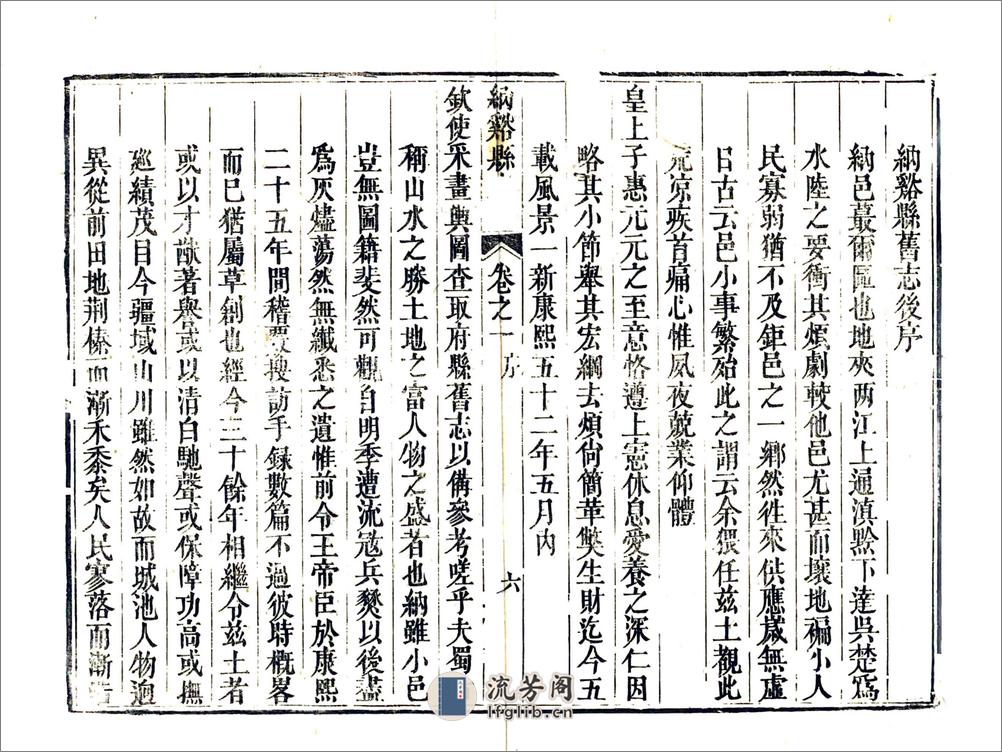 納谿縣舊志後序
納邑蕞爾區也地夾两江上通滇黔下達吳楚爲
水陸之要衝其煩劇較他邑尤甚而壤地褊小人
民寡弱猶不及鉅邑之一鄉然徃來供應歲無虛
日古云邑小事繁殆此之謂云余猥任茲土觀此
荒凉疾首痛心惟夙夜兢業仰體
皇上子惠元元之至意恪遵上憲休息愛養之深仁因
略其小節舉其宏綱去煩尙簡革獘生財迄今五
載風景一新康熙五十二年五月內
納谿縣 卷之一 序 六
欽使采畫輿圖查取府縣舊志以備參考嗟乎夫蜀
稱山水之勝土地之富人物之盛者也納雖小邑
豈無圖籍斐然可觀自明季遭流冦兵燹以後盡
爲灰燼蕩然無纖悉之遺惟前令王帝臣於康熙
二十五年間稽覈搜訪手録數篇不過彼時概畧
而已猶屬草創也經今三十餘年相繼令茲土者
或以才猷著舉或以清白馳聲或保障功高或撫
廵績茂目今疆域山川雖然如故而城池人物迥
異從前田地荆榛而漸禾黍矣人民寥落而漸
流芳阁
lfglib.cn